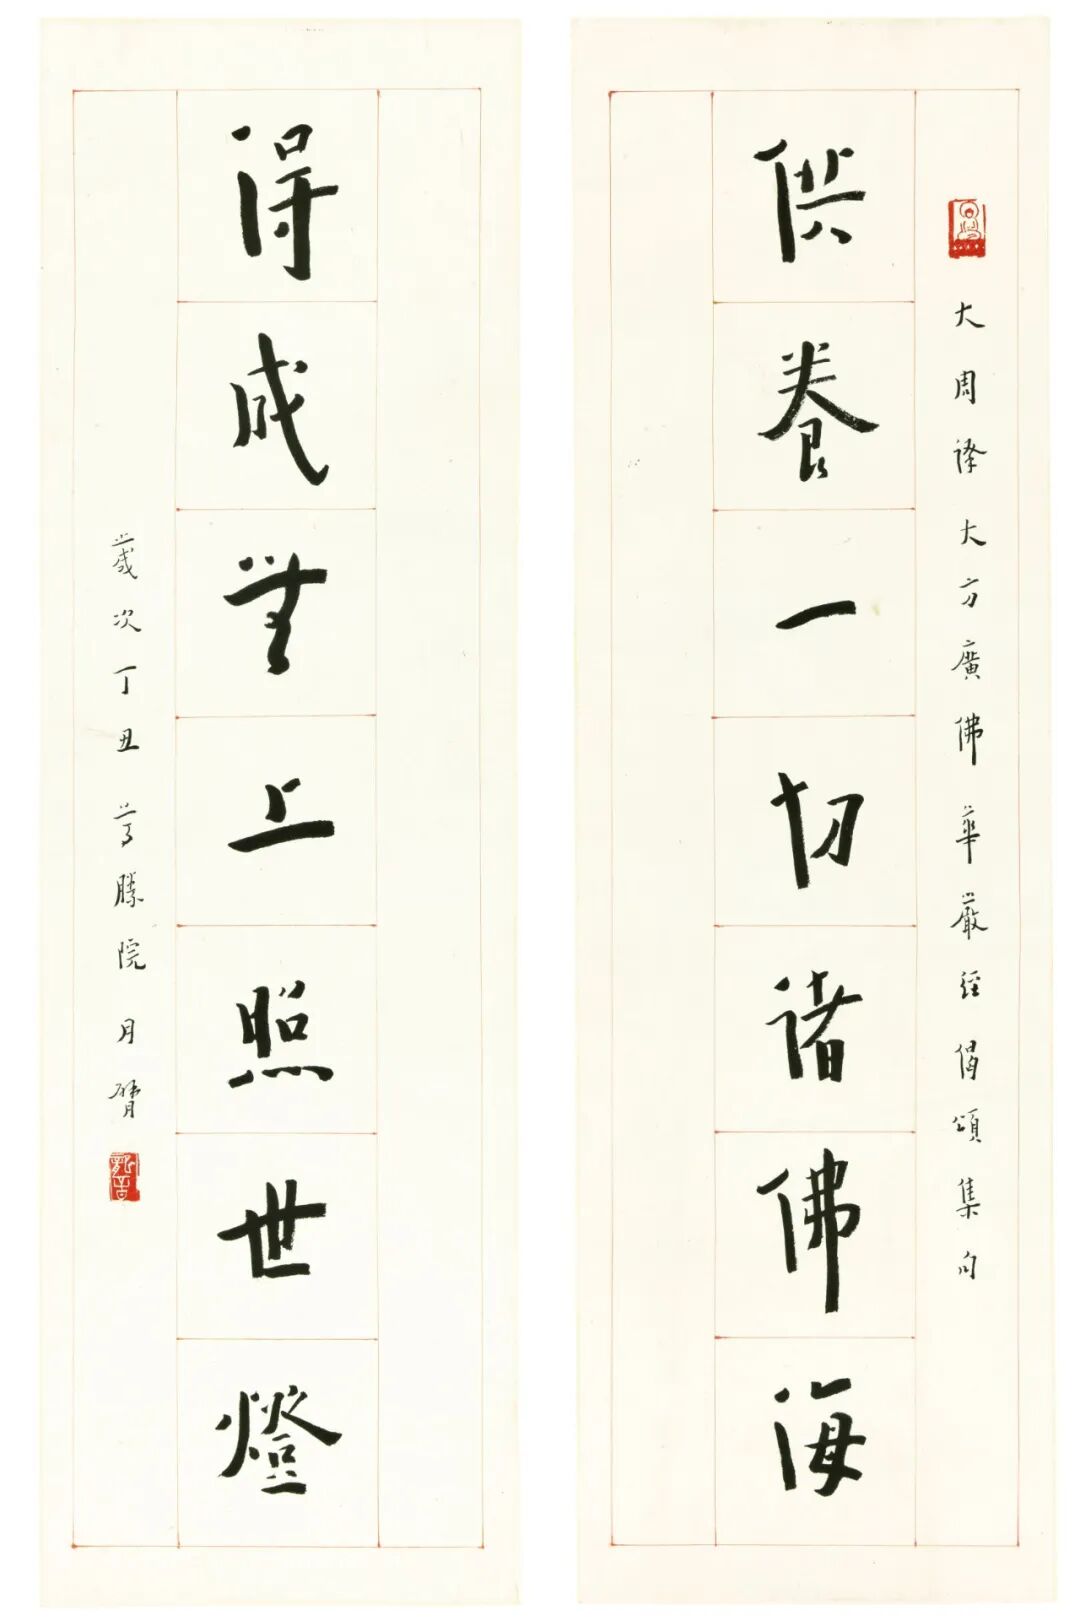 大周譯大方廣佛華嚴經偈頌集句
供養一切諸佛海
得成無上照世燈
歲次丁丑尊勝院月臂
龍音